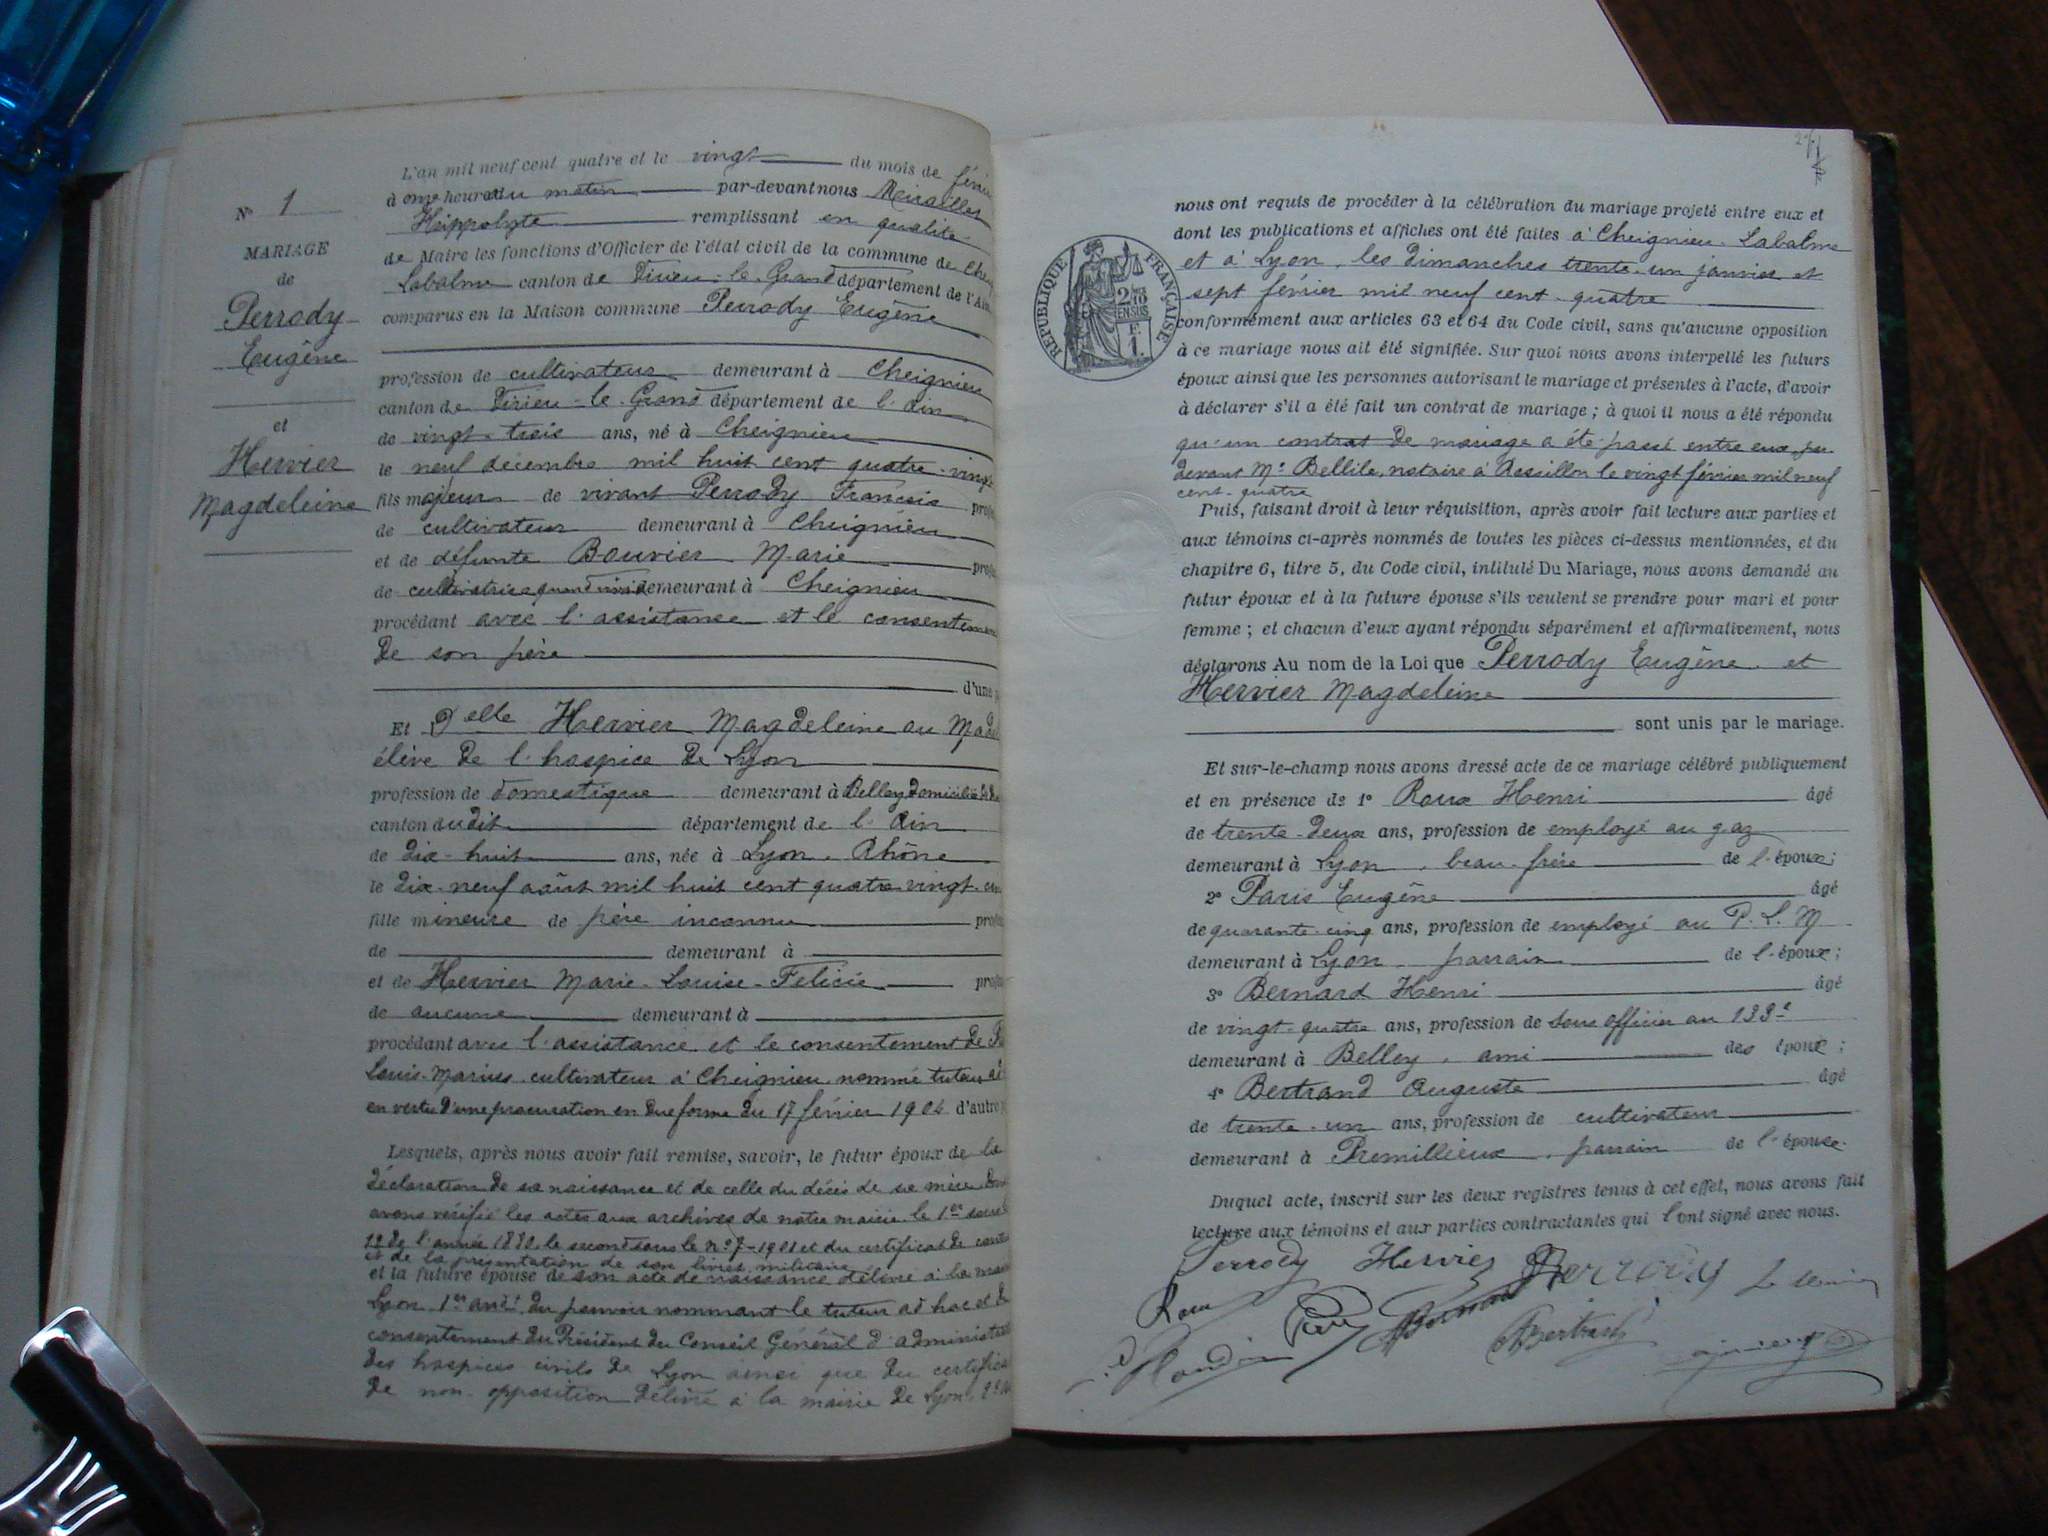 N° 1
MARIAGE
de
Perrody
Eugène
et
Hervier
Magdeleine
L'an mil neuf cent quatre et le vingt du mois de
à onze heures du matin par-devant nous
Hippolyte remplissant en qualité
de Maire les fonctions d'Officier de l'état civil de la commune de
Labalme canton de Virieu-le-Grand département de l'Ain
comparus en la Maison commune Perrody Eugène
profession de cultivateur demeurant à Cheignieu
canton de Virieu-le-Grand département de l'Ain
de vingt-trois ans, né à Cheignieu
le neuf décembre mil huit cent quatre-vingt
fils majeur de vivant Perrody François
de cultivateur demeurant à Cheignieu
et de défunte Bouvier Marie
de cultivatrice quand vivait demeurant à Cheignieu
procédant avec l'assistance et le consentement
de son père
d'une
Et Delle Hervier Magdeleine ou
élève de l'hospice de Lyon
profession de domestique demeurant à Belley domiciliée
canton dudit département de l'Ain
de dix-huit ans, née à Lyon, Rhône
le dix-neuf août mil huit cent quatre vingt
fille mineure de père inconnu
de demeurant à
et de Hervier Marie-Louise-Félicie
de aucune demeurant à
procédant avec l'assistance et le consentement de
Louis-Marius cultivateur à Cheignieu nommé tuteur ad
en vertu d'une procuration en due forme du 17 février 1904 d'autre
Lesquels, après nous avoir fait remise, savoir, le futur époux de la
déclaration de sa naissance et de celle du décès de sa mère dont
avons vérifié les actes aux archives de notre mairie, le 1er sous le
12 de l'année 1880, le second sous le n° 7-1901 et du certificat de
et de la présentation de son livret militaire
et la future épouse de son acte de naissance délivré à la
Lyon, 1er arrdt du pouvoir nommant le tuteur ad hoc et
consentement du Président du Conseil Général d'administration
des hospices civils de Lyon ainsi que du certificat
de non-opposition délivré à la mairie de Lyon,
RÉPUBLIQUE FRANÇAISE
2/10
EN SUS
nous ont requis de procéder à la célébration du mariage projeté entre eux et
dont les publications et affiches ont été faites à Cheignieu-Labalme
et à Lyon, les dimanches trente-un janvier et
sept février mil neuf cent quatre
conformément aux articles 63 et 64 du Code civil, sans qu'aucune opposition
à ce mariage nous ait été signifiée. Sur quoi nous avons interpellé les futurs
époux ainsi que les personnes autorisant le mariage et présentes à l'acte, d'avoir
à déclarer s'il a été fait un contrat de mariage ; à quoi il nous a été répondu
qu'un contrat de mariage a été passé entre eux par
devant Me Bellile, notaire à Rossillon le vingt février mil neuf
cent-quatre
Puis, faisant droit à leur réquisition, après avoir fait lecture aux parties et
aux témoins ci-après nommés de toutes les pièces ci-dessus mentionnées, et du
chapitre 6, titre 5, du Code civil, intitulé Du Mariage, nous avons demandé au
futur époux et à la future épouse s'ils veulent se prendre pour mari et pour
femme ; et chacun d'eux ayant répondu séparément et affirmativement, nous
déclarons Au nom de la Loi que Perrody Eugène et
Hervier Magdeleine
sont unis par le mariage.
Et sur-le-champ nous avons dressé acte de ce mariage célébré publiquement
et en présence de 1° Roux Henri âgé
de trente-deux ans, profession de employé au gaz
demeurant à Lyon, beau-frère de l'époux;
2° Paris Eugène âgé
de quarante-cinq ans, profession de employé au P. L. M
demeurant à Lyon, parrain de l'époux;
3° Bernard Henri âgé
de vingt-quatre ans, profession de sous officier au 133e
demeurant à Belley, ami des époux;
4° Bertrand Auguste âgé
de trente-un ans, profession de cultivateur
demeurant à Prémillieux, parrain de l'épouse.
Duquel acte, inscrit sur les deux registres tenus à cet effet, nous avons fait
lecture aux témoins et aux parties contractantes qui l'ont signé avec nous.
Perrody Hervier Perrody
Roux Bernard Bertrand